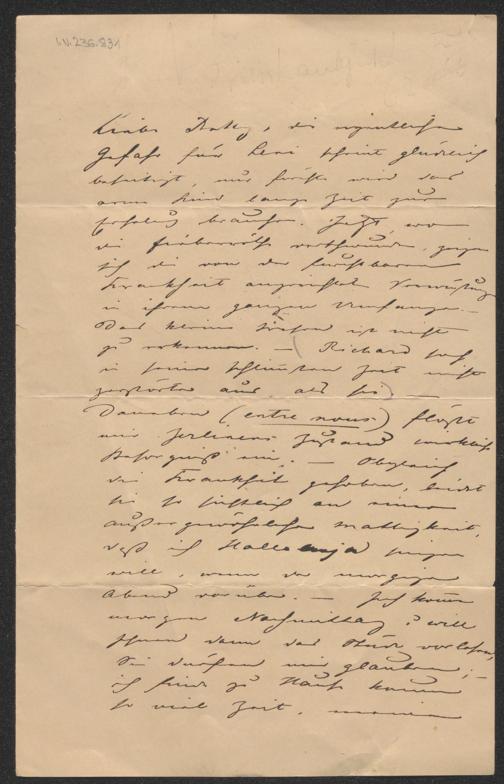 I.N. 236.831
Liebe Betty, die eigentliche
Gefahr für Leni scheint glücklich
beseitigt, nur hiefür wird das
arme Kind lange Zeit zur
Erholung brauchen. Jetzt, wo
die Fieberröthe verschwunden, zeigen
sich die von der furchtbaren
Krankheit angerichteten Verwüstungen
in ihrem ganzen Umfange. –
Das kleine ist nicht
zu erkennen. – Richard sah
in seiner schlimmsten Zeit nicht
zerstörter aus als sie.
Daneben (entre nous) flößt
mir Zustand wirklich
Besorgniß ein. – Obgleich
die Krankheit gehoben, leidet
sie so sichtlich an einer
außergewöhnlichen Mattigkeit,
daß ich Halleluja singen
will, wenn der morgige
Abend vorüber. – Ich komme
morgen Nachmittag & will
Ihnen dann das Stück vorlesen,
Sie dürfen mir glauben; –
ich finde zu Hause kaum
so viel Zeit, meine